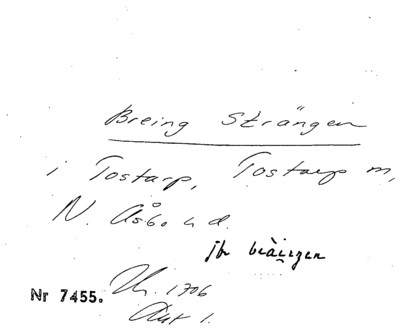 Breing Strängen
i Tostarp, Tostarp m,
N. Åsbo hd.
jfr
Nr 7455. 1706
Akt 1.